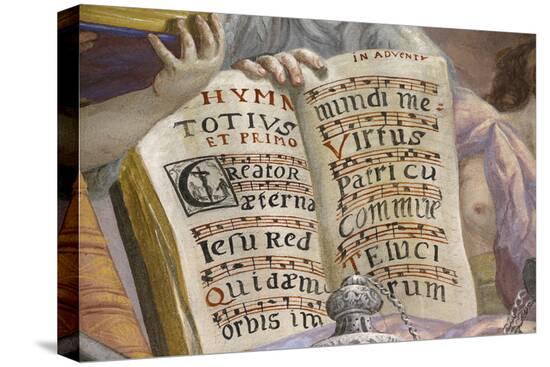 HYMN
TOTIUS
ET PRIMO
CREATOR
æterna
Iesu Red
Quidæm
orbis im
IN ADVENTV
mundi me-
Virtus
Patricu
Commue
Teluci
rum